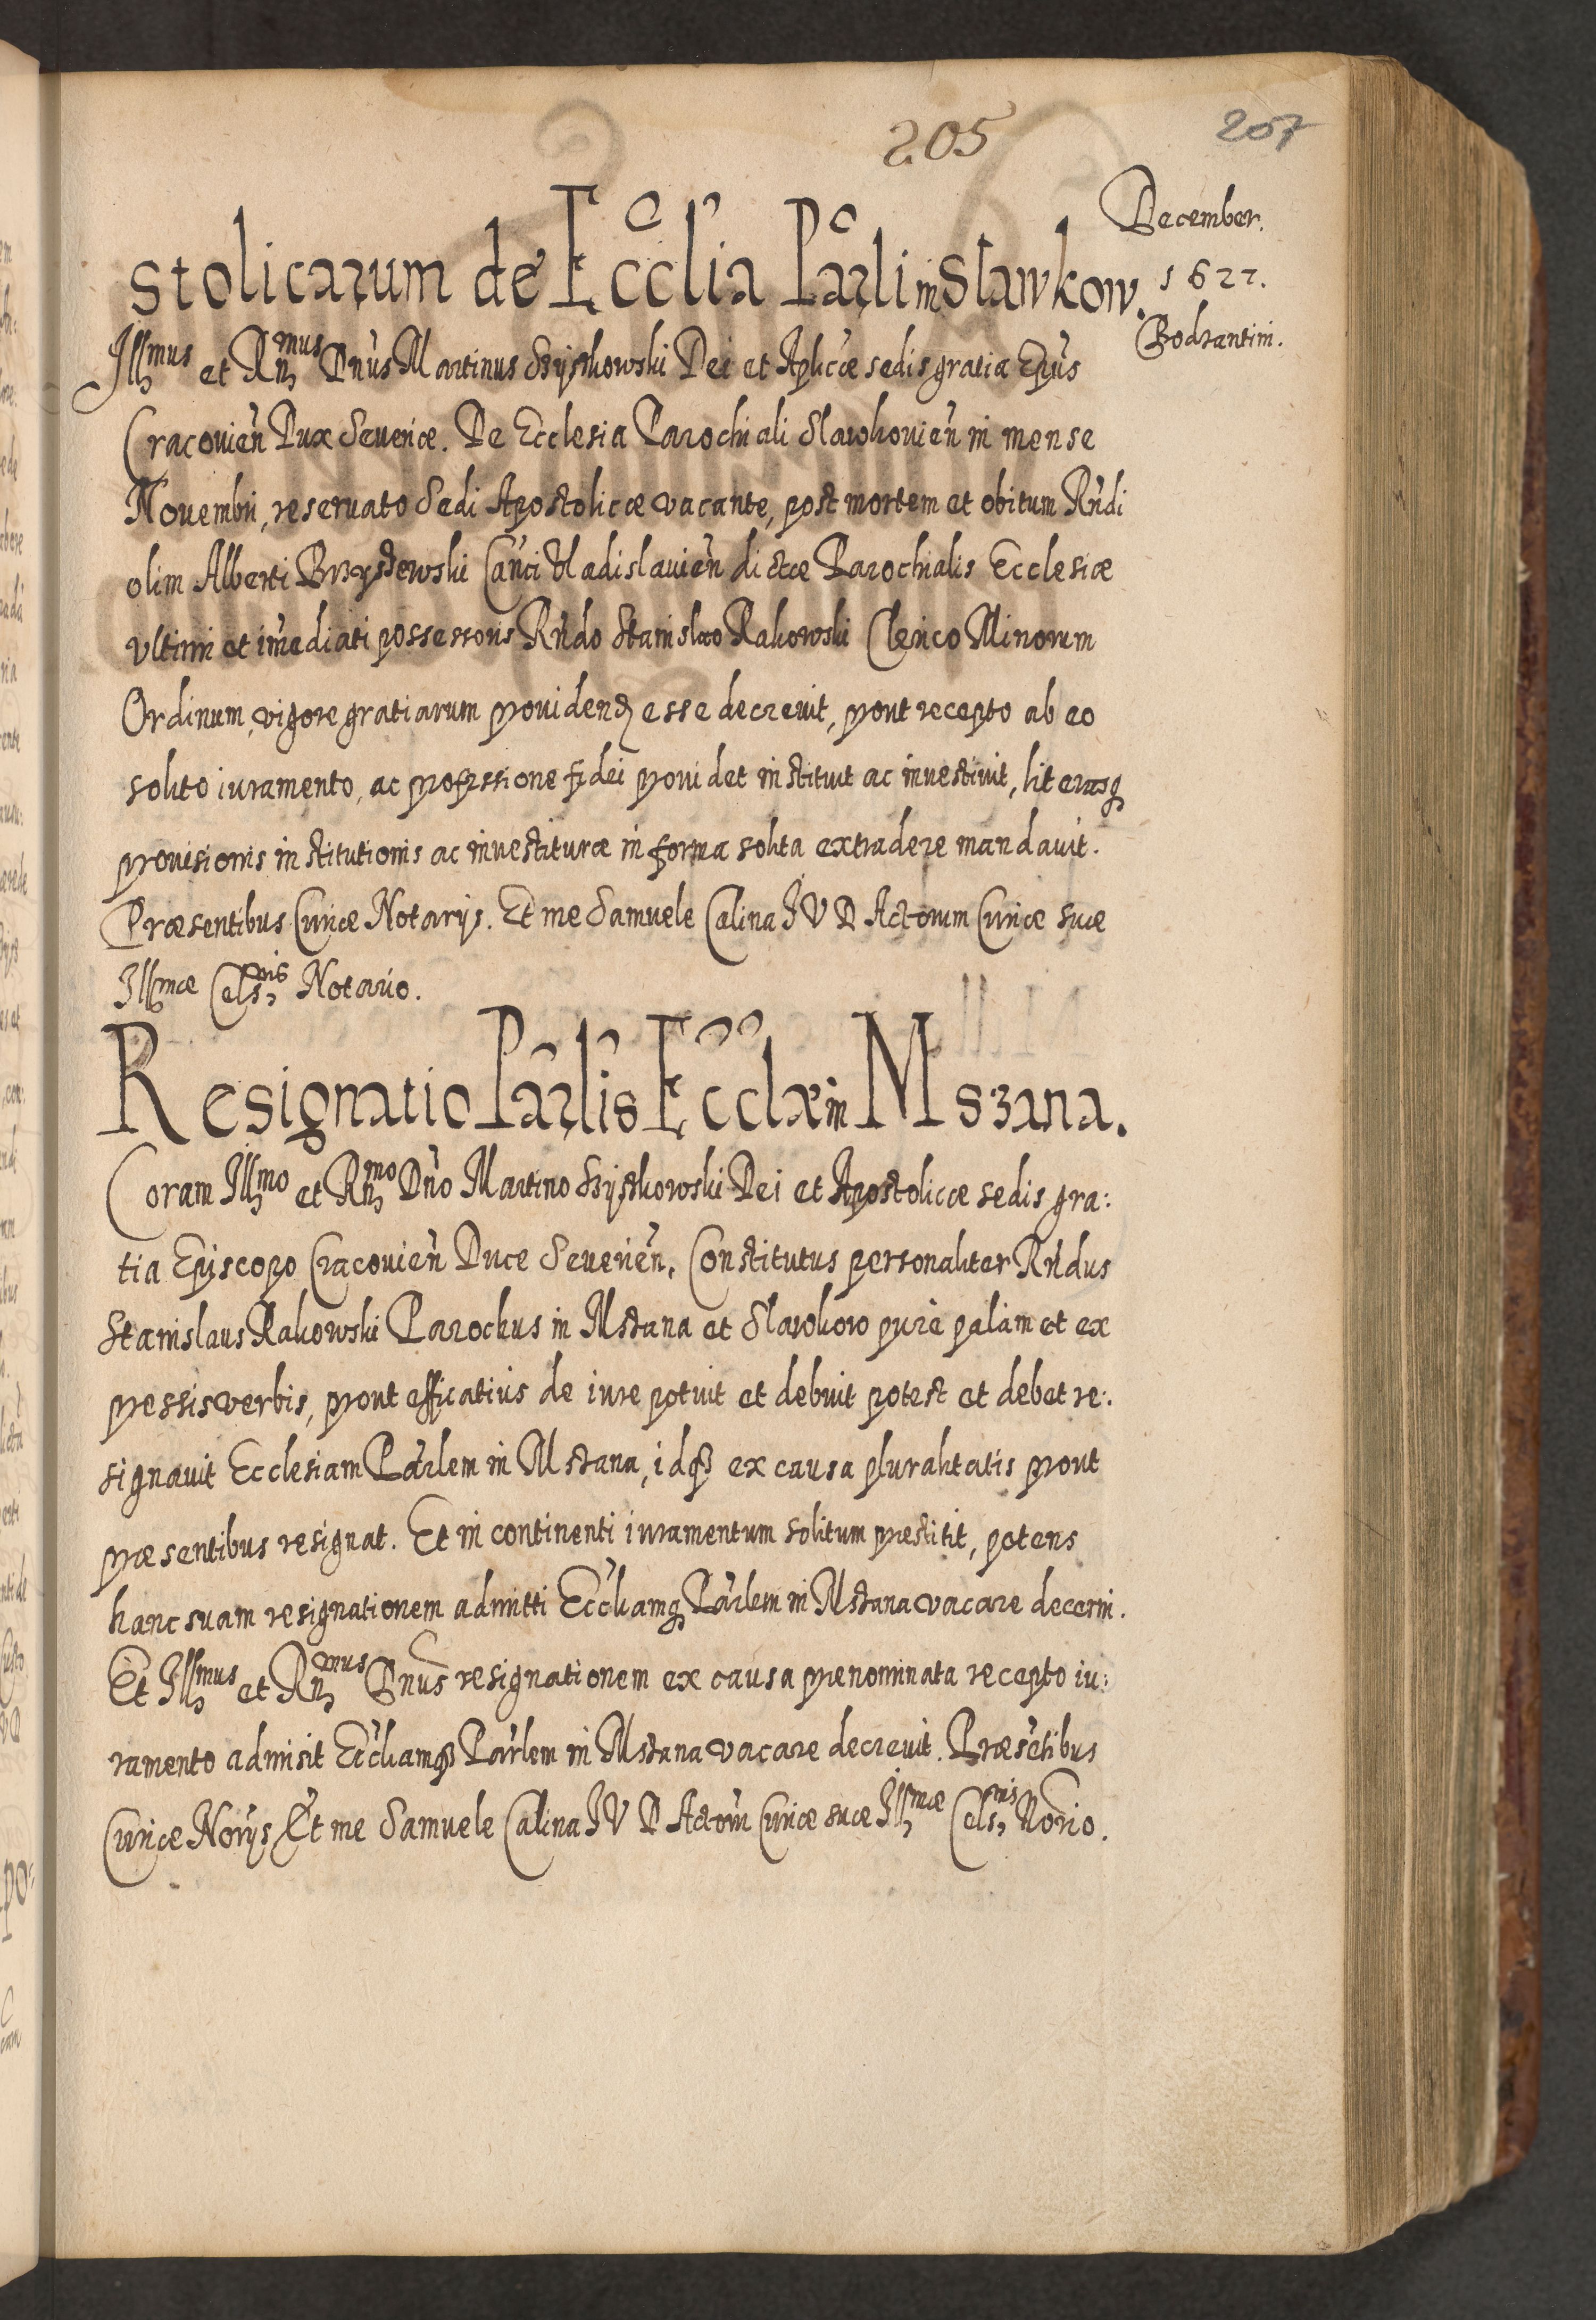 205
207
December.
1622.
Bodzantini.
stolicarum de Ecclia Parli in Slawkow.
Illmus et Rnmus Dnus Martinus Szyszkowski Dei et Aplicæ sedis gratia Epus
Cracovien Dux Severiæ. De Ecclesia Parochiali Slawkovien in mense
Novembri, reservato Sedi Apostolicæ vacante, post mortem et obitum Rndi
olim Alberti Brzyszewski Canci Vladislavien dictæ Parochialis Ecclesiæ
ultimi et imediati possessoris Rndo Stanislao Rakowski Clerico Minorum
Ordinum, vigore gratiarum providend esse decrevit, prout recepto ab eo
solito iuramento, ac professione fidei providet instituit ac investivit, literasq
provisionis institutionis ac investituræ in forma solita extradere mandavit.
Præsentibus Curiæ Notarys. Et me Samuele Calina I V D Actorum Curiæ suæ
Illmæ Celsnis Notario.
Resignatio Parlis Eccliæ in Mszana.
Coram Illmo et Rnmo Dno Martino Szyszkowski Dei et Apostolicæ sedis gra:
tia Episcopo Cracovien Duce Severien, Constitutus personaliter Rndus
Stanislaus Rakowski Parochus in Mszana et Slawkow pure palam et ex
pressis verbis, prout efficatius de iure potuit et debuit potest et debet re:
signavit Ecclesiam Parlem in Mszana, idq ex causa pluralitatis prout
præsentibus resignat. Et in continenti iuramentum solitum præstitit, petens
hanc suam resignationem admitti Eccliamq Parlem in Mszana vacare decerni.
Et Illmus et Rnmus Dnus resignationem ex causa prenominata recepto iu:
ramento admisit Eccliamq Parlem in Mszana vacare decrevit. Præsetibus
Curiæ Norys Et me Samuele Calina I V D Actom Curiæ suæ Illmæ Celsnis Norio.